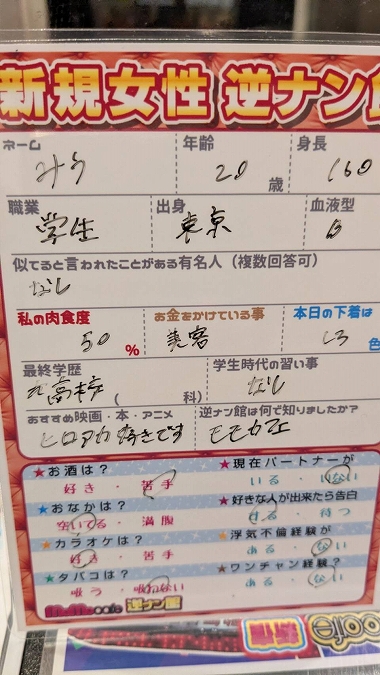 新規女性 逆ナン館
ネーム 年齢 身長
みう 20 歳 160
職業 出身 血液型
学生 東京 B
似てると言われたことがある有名人（複数回答可）
なし
私の肉食度 お金をかけている事 本日の下着は
50 % 美容 しろ 色
最終学歴 学生時代の習い事
高校 ( 科) なし
おすすめ映画・本・アニメ 逆ナン館は何で知りましたか？
ヒロアカ好きです モモカフェ
★お酒は？ ★現在パートナーが
好き・苦手 いる・いない
★おなかは？ ★好きな人が出来たら告白
空いてる・満腹 する・待つ
★カラオケは？ ★浮気不倫経験が
好き・苦手 ある・ない
★タバコは？ ★ワンチャン経験は？
吸う・吸わない ある・ない
cafe 逆ナン館